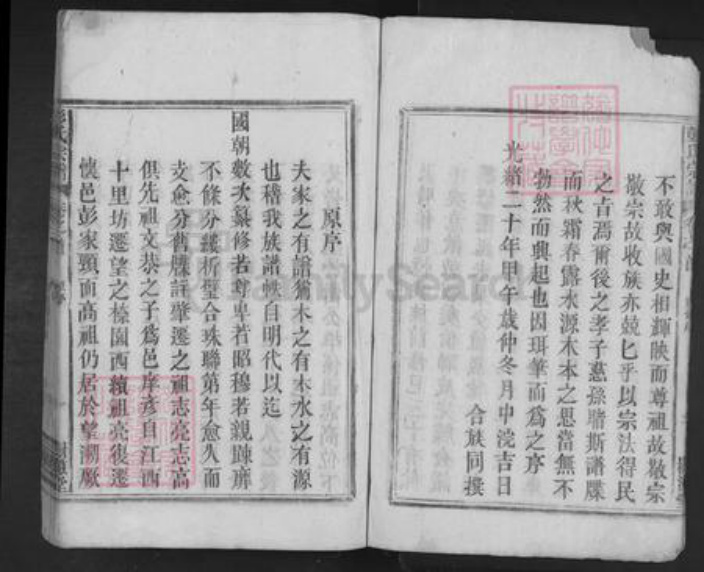 不敢與國史相輝映而尊祖故敬宗
敬宗故收族亦兢匕乎以宗法得民
之旨焉爾後之孝子慈孫睹斯譜牒
而秋霜春露水源木本之思當無不
勃然而興起也因珥筆而為之序
光緒二十年甲午歲仲冬月中浣吉日
合族同撰
原序
夫家之有譜猶木之有本水之有源
也稽我族譜帙自明代以迄
國朝數次纂修若尊卑若昭穆若親踈靡
不條分縷析璧合珠聯第年愈久而
支愈分舊牒詳肇遷之祖志亮志高
俱先祖文恭之子爲邑庠彥自江西
十里坊遷望之檬園西續祖亮復遷
懷邑彭家頸而高祖仍居於望湖厥
FamilySearch